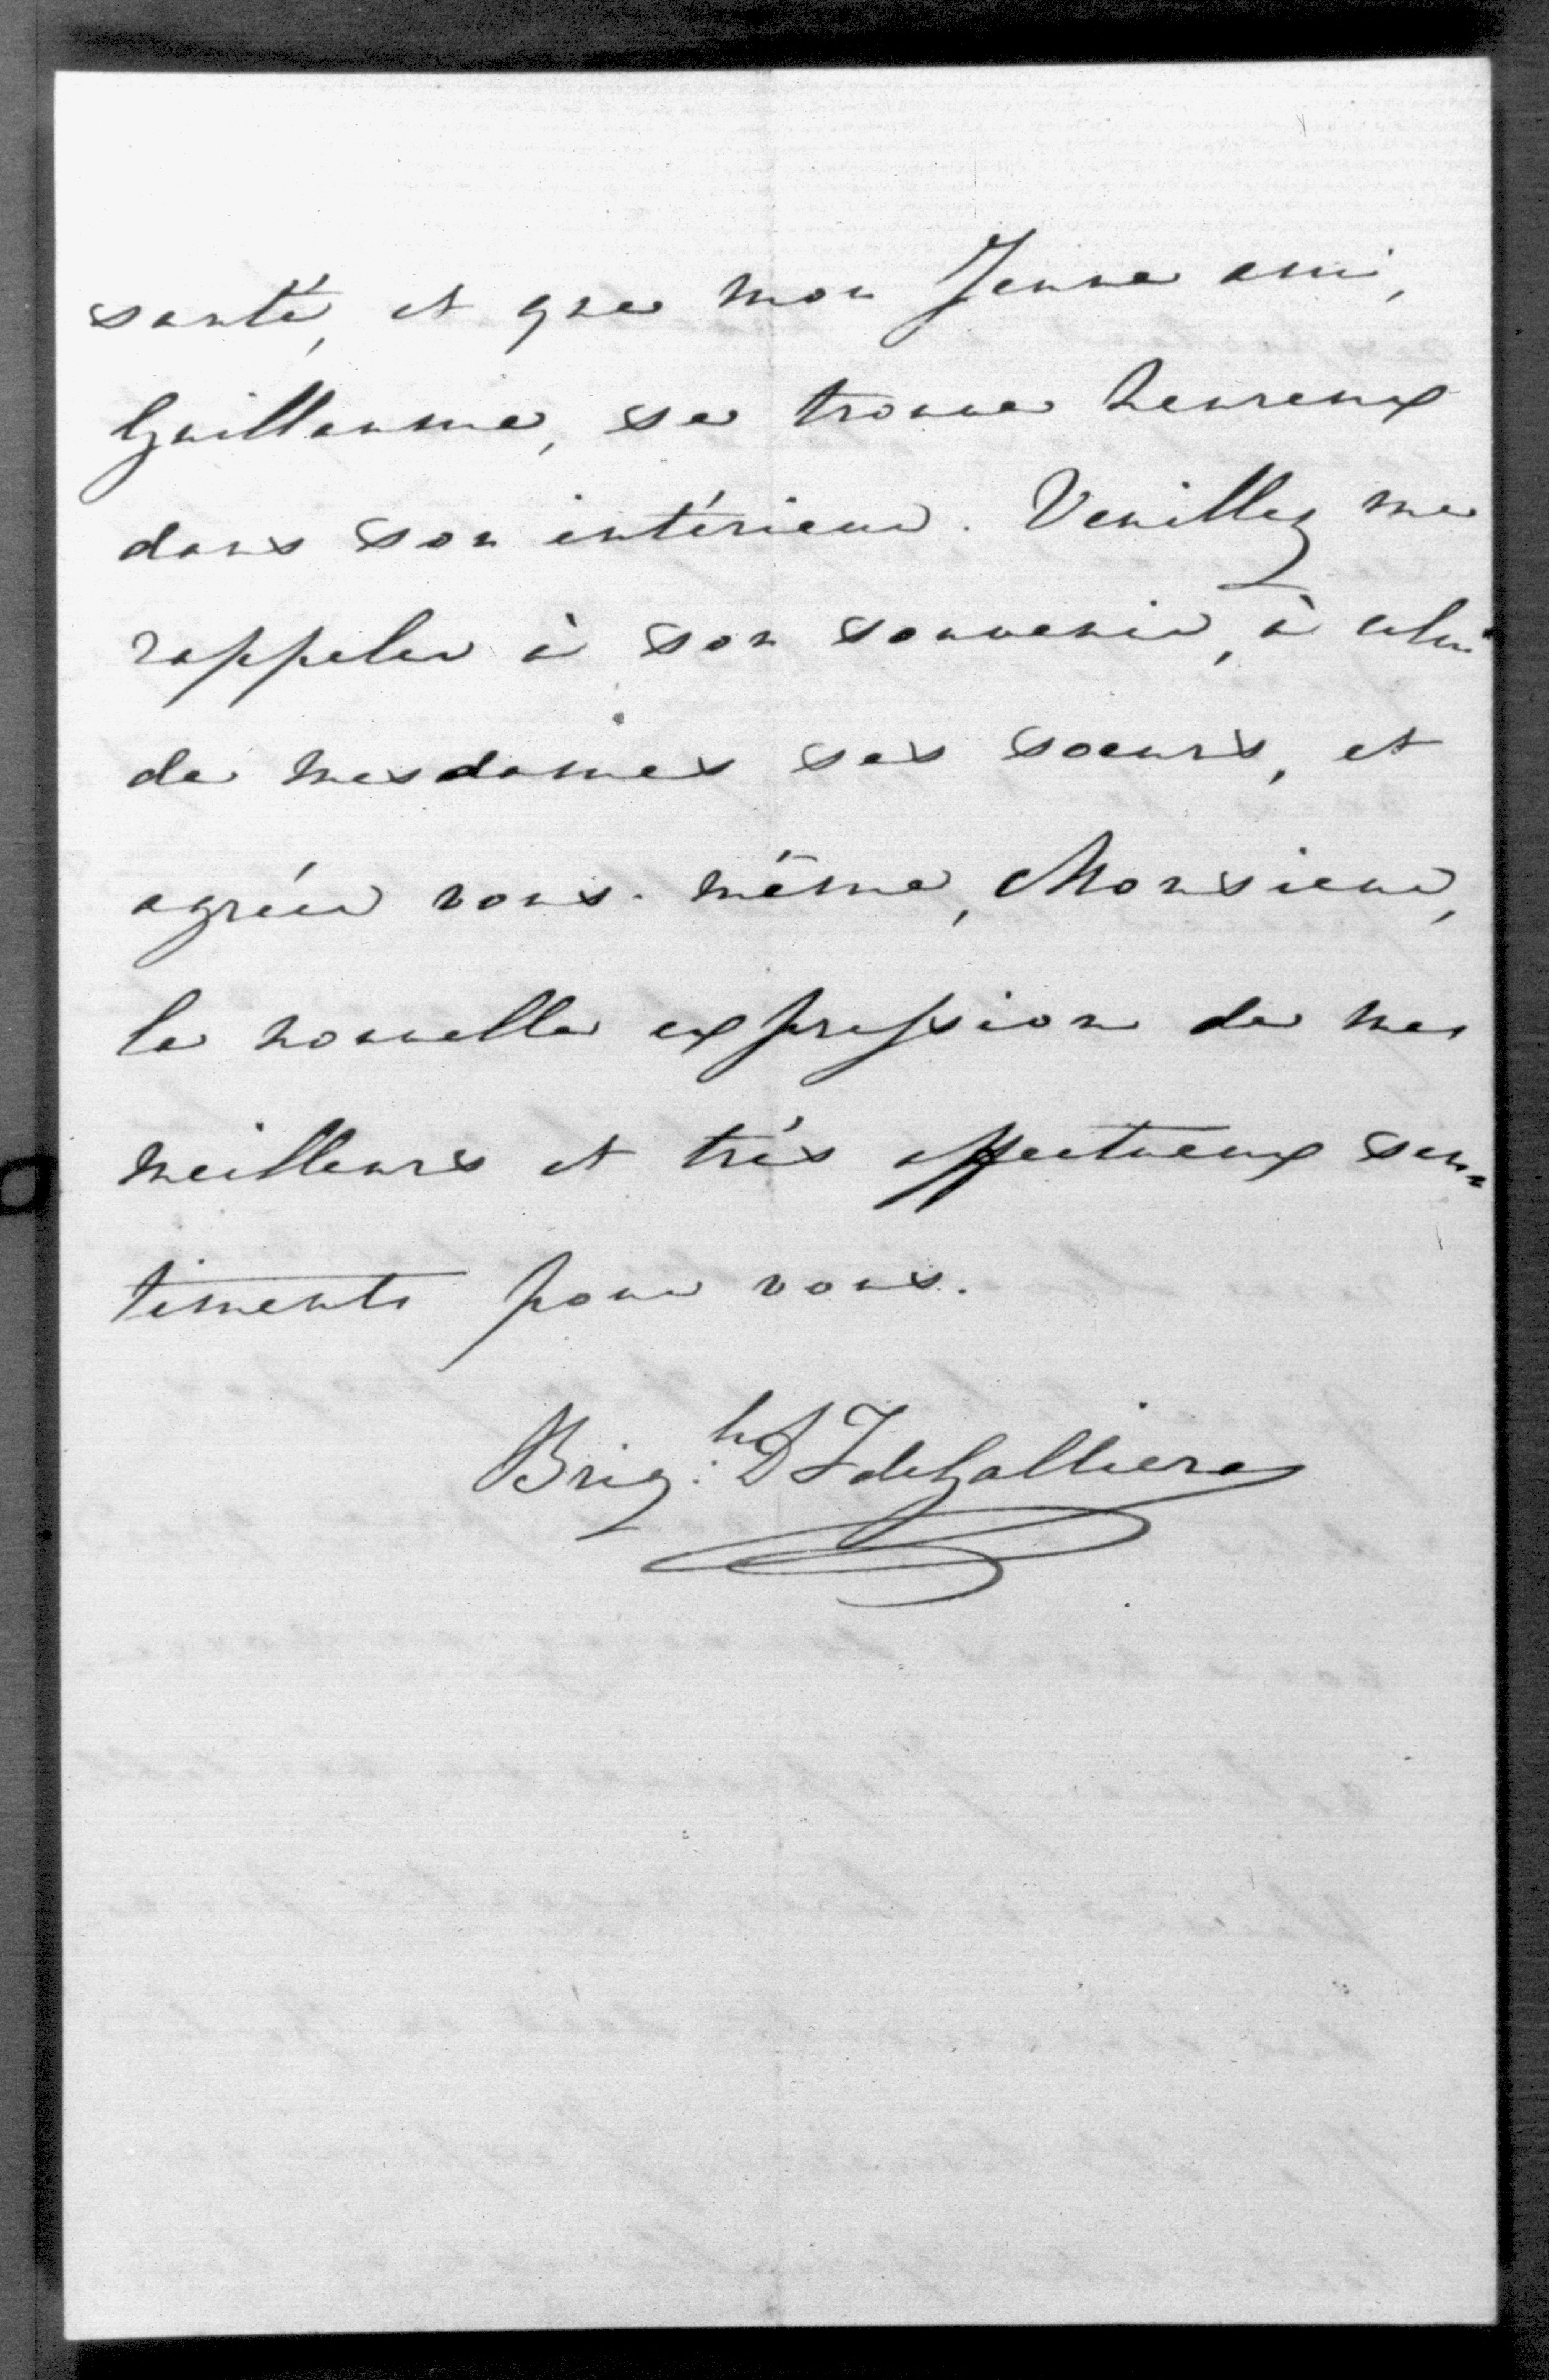 santé, et que mon Jeune ami,
Guillaume, se trouve heureux
dans son intérieur. Veuillez me
rappeler à son souvenir, à celui
de mesdames ses soeurs, et
agréer vous-même, Monsieur,
la nouvelle expression de mes
meilleurs et très affectueux sen=
timents pour vous.
Brig: